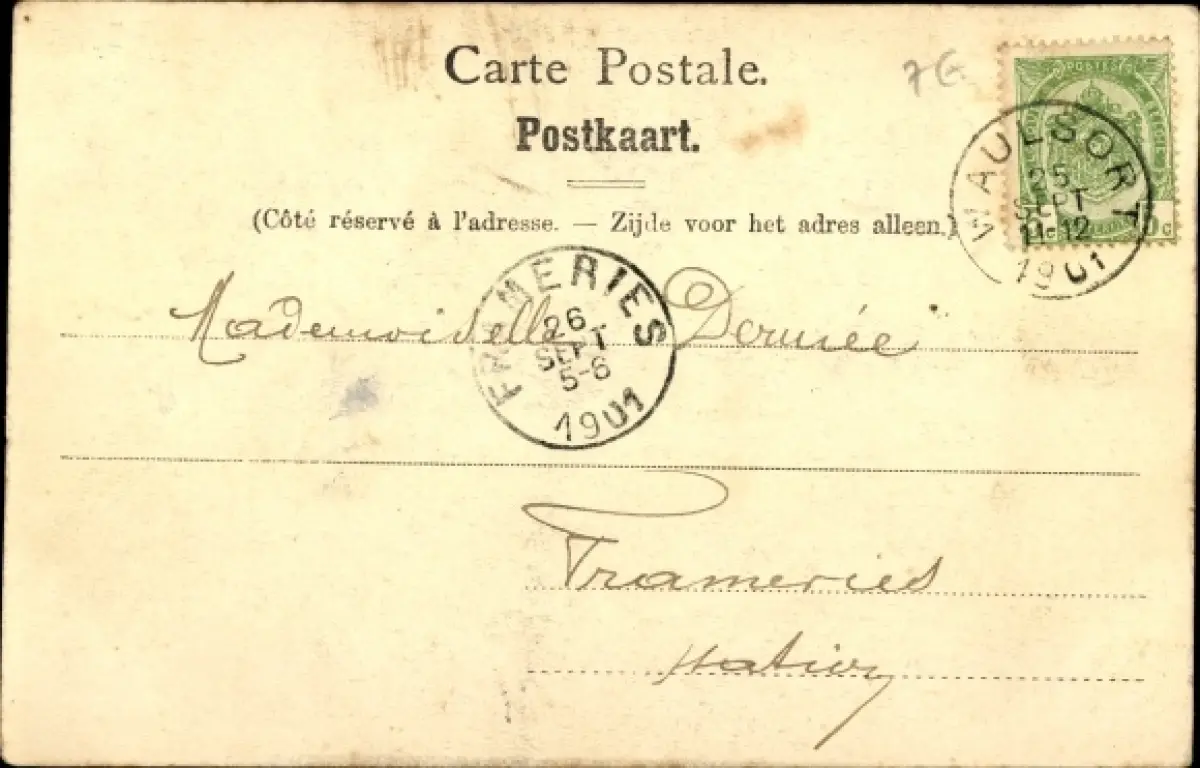 Carte Postale.
7€
Postkaart.
(Côté réservé à l'adresse. — Zijde voor het adres alleen.)
POSTES
WAULSORT
25
SEPT
11-12
1901
FRAMERIES
26
SEPT
5-6
1901
Mademoiselle Dormée
Frameries
station